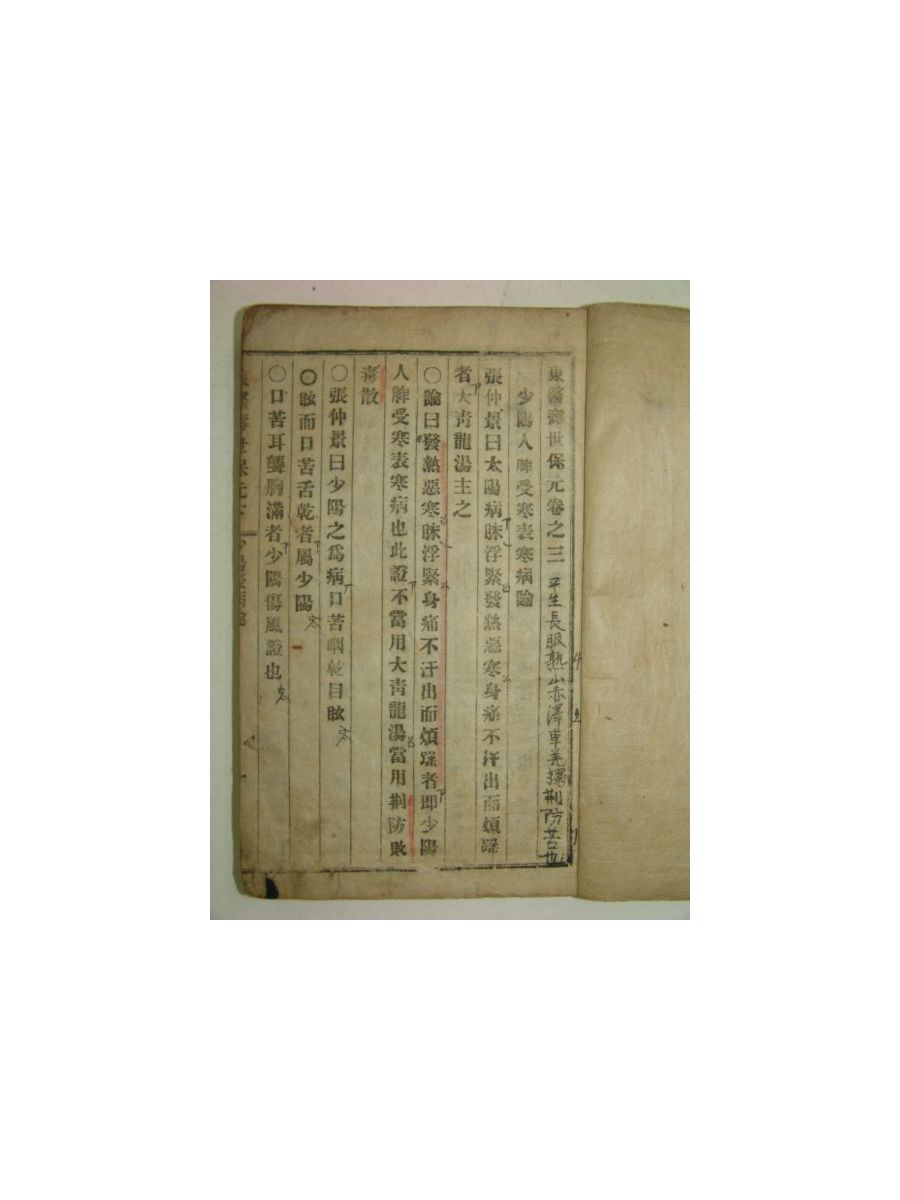 東醫壽世保元卷之三 平生長服熟山赤澤車羌獨荆防苦也
少陽人脾受寒表寒病論
張仲景曰太陽病脉浮緊發熱惡寒身痛不汗出而煩躁
者大靑龍湯主之
〇論曰發熱惡寒脉浮緊身痛不汗出而煩躁者即少陽
人脾受寒表寒病也此證不當用大靑龍湯當用荆防敗
毒散
〇張仲景曰少陽之爲病口苦咽乾目眩
〇眩而口苦舌乾者屬少陽
〇口苦耳聾胸滿者少陽傷風證也
東醫壽世保元